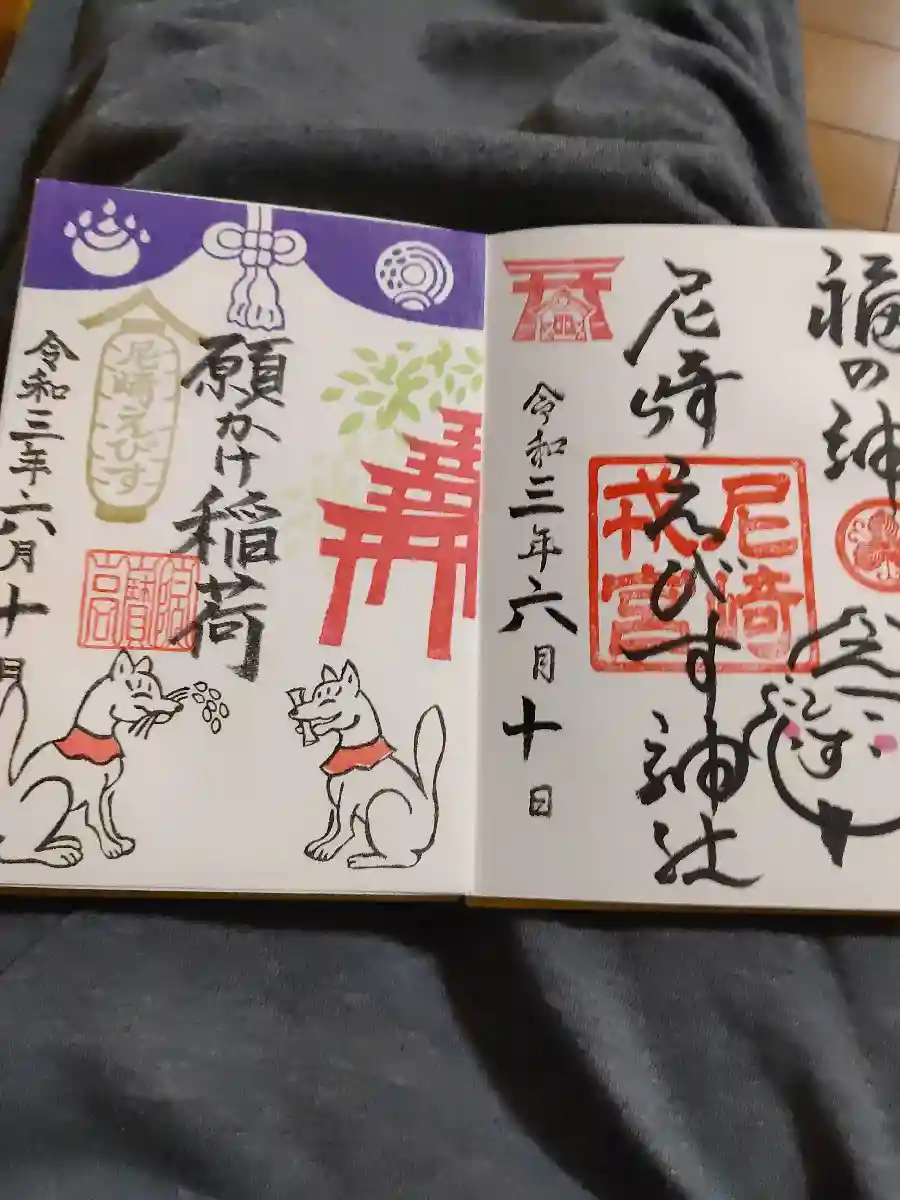 福の神
尼崎えびす神社
尼崎
戎宮
令和三年六月十日
願かけ稲荷
尼崎えびす
令和三年六月十日